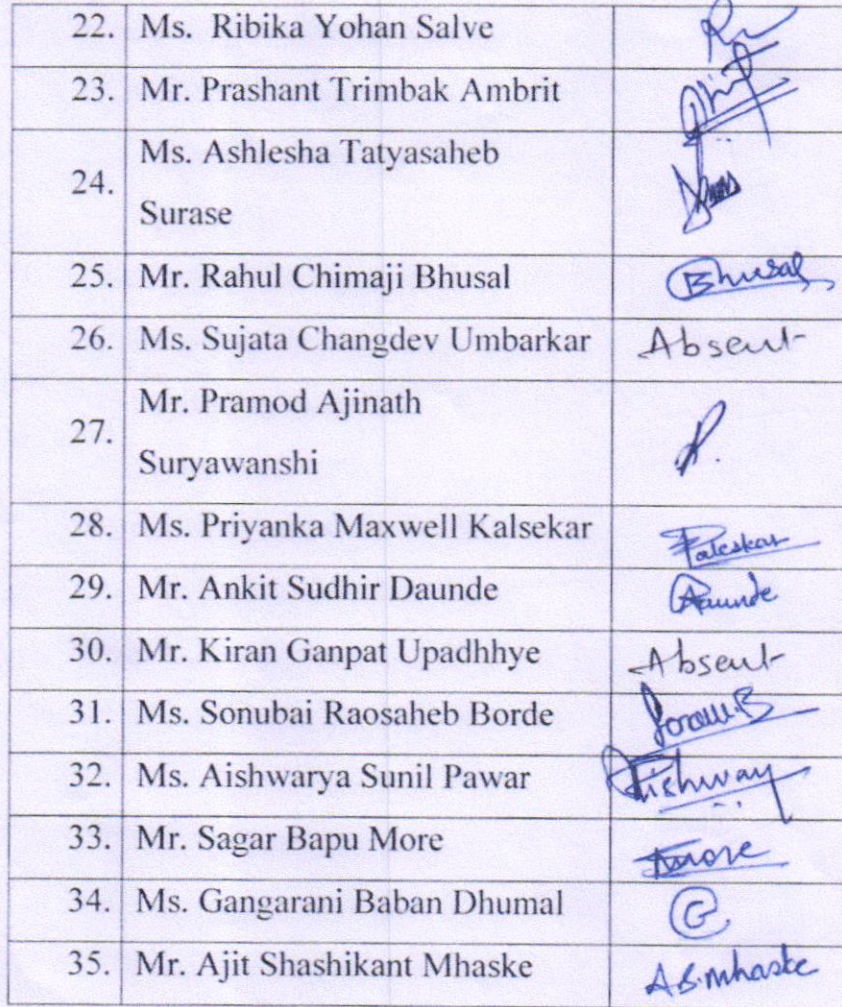 22. Ms. Ribika Yohan Salve
23. Mr. Prashant Trimbak Ambrit
24. Ms. Ashlesha Tatyasaheb
Surase
25. Mr. Rahul Chimaji Bhusal Bhusal
26. Ms. Sujata Changdev Umbarkar Absent
27. Mr. Pramod Ajinath
Suryawanshi
28. Ms. Priyanka Maxwell Kalsekar
29. Mr. Ankit Sudhir Daunde Daunde
30. Mr. Kiran Ganpat Upadhhye Absent
31. Ms. Sonubai Raosaheb Borde
32. Ms. Aishwarya Sunil Pawar
33. Mr. Sagar Bapu More More
34. Ms. Gangarani Baban Dhumal G
35. Mr. Ajit Shashikant Mhaske A.S.Mhaske